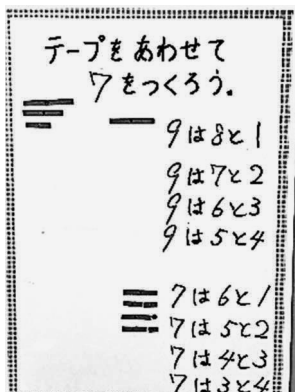 テープをあわせて
7をつくろう.
9は8と1
9は7と2
9は6と3
9は5と4
7は6と1
7は5と2
7は4と3
7は3と4